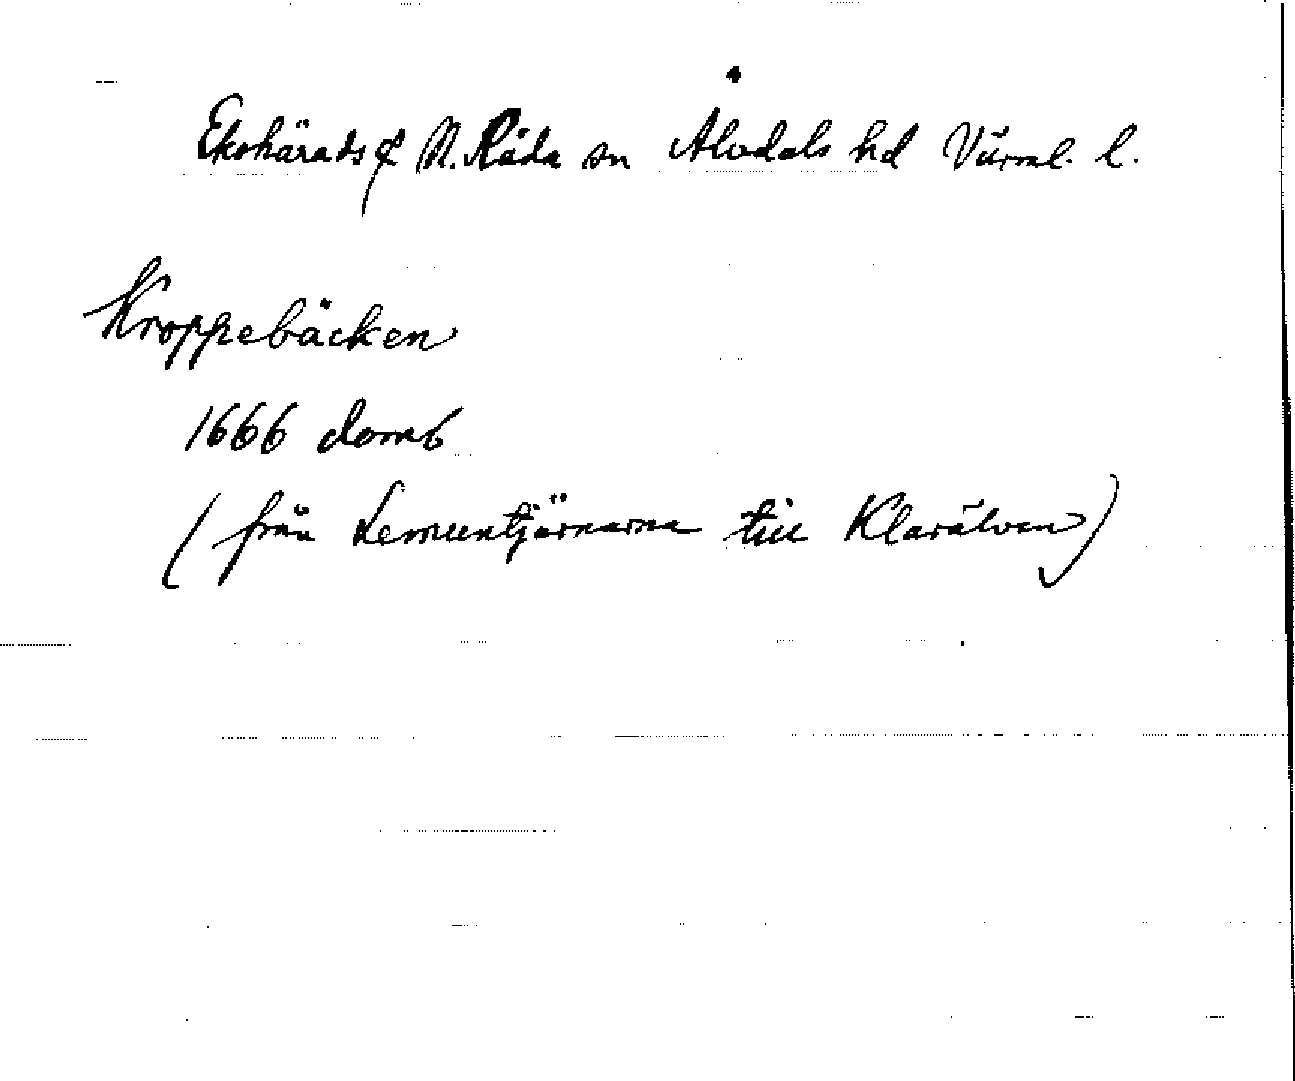 Ekshärads & N. Råda sn Älvdals hd Värml. l.
Kroppebäcken
1666 domb
(från Lemuntjärnarna till Klarälven)